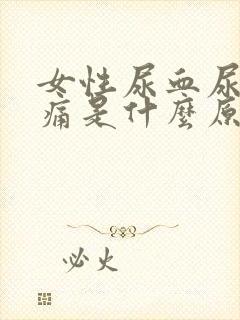 女性尿血尿
痛是什麼原
必火